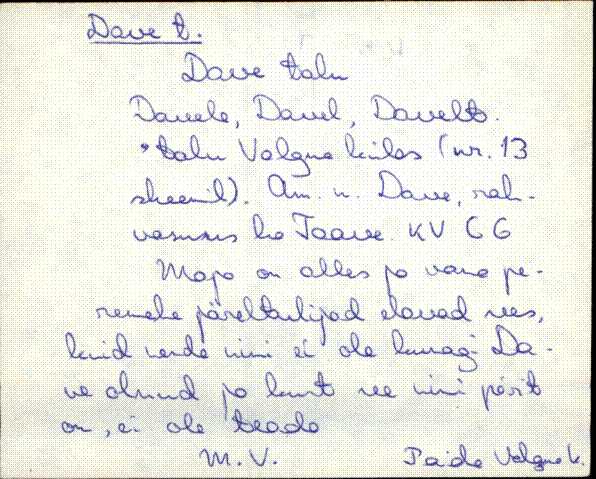 Dave t.
Dave talu
Davele, Davel, Davelt.
talu Valgma külas (nr. 13
skeemil). Am. n. Dave, rah-
vasuus ka Taave. KV 66
Maja on alles ja vana pe-
remehe järeltulijad elavad sees,
kuid nende nimi ei ole kunagi Da-
ve olnud ja kust see nimi pärit
on, ei ole teada
M.V. Paide Valgma k.